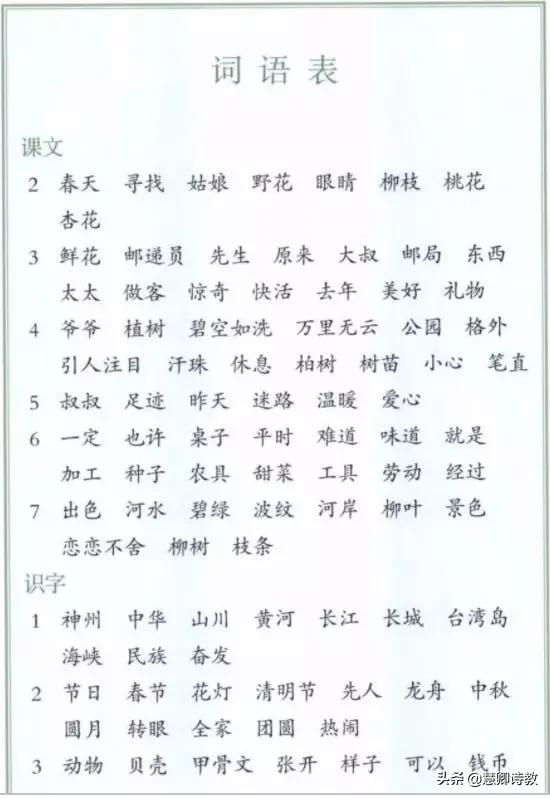 词语表
课文
2 春天 寻找 姑娘 野花 眼睛 柳枝 桃花
杏花
3 鲜花 邮递员 先生 原来 大叔 邮局 东西
太太 做客 惊奇 快活 去年 美好 礼物
4 爷爷 植树 碧空如洗 万里无云 公园 格外
引人注目 汗珠 休息 柏树 树苗 小心 笔直
5 叔叔 足迹 昨天 迷路 温暖 爱心
6 一定 也许 桌子 平时 难道 味道 就是
加工 种子 农具 甜菜 工具 劳动 经过
7 出色 河水 碧绿 波纹 河岸 柳叶 景色
恋恋不舍 柳树 枝条
识字
1 神州 中华 山川 黄河 长江 长城 台湾岛
海峡 民族 奋发
2 节日 春节 花灯 清明节 先人 龙舟 中秋
圆月 转眼 全家 团圆 热闹
3 动物 贝壳 甲骨文 张开 样子 可以 钱币
头条 @慧卿诗教